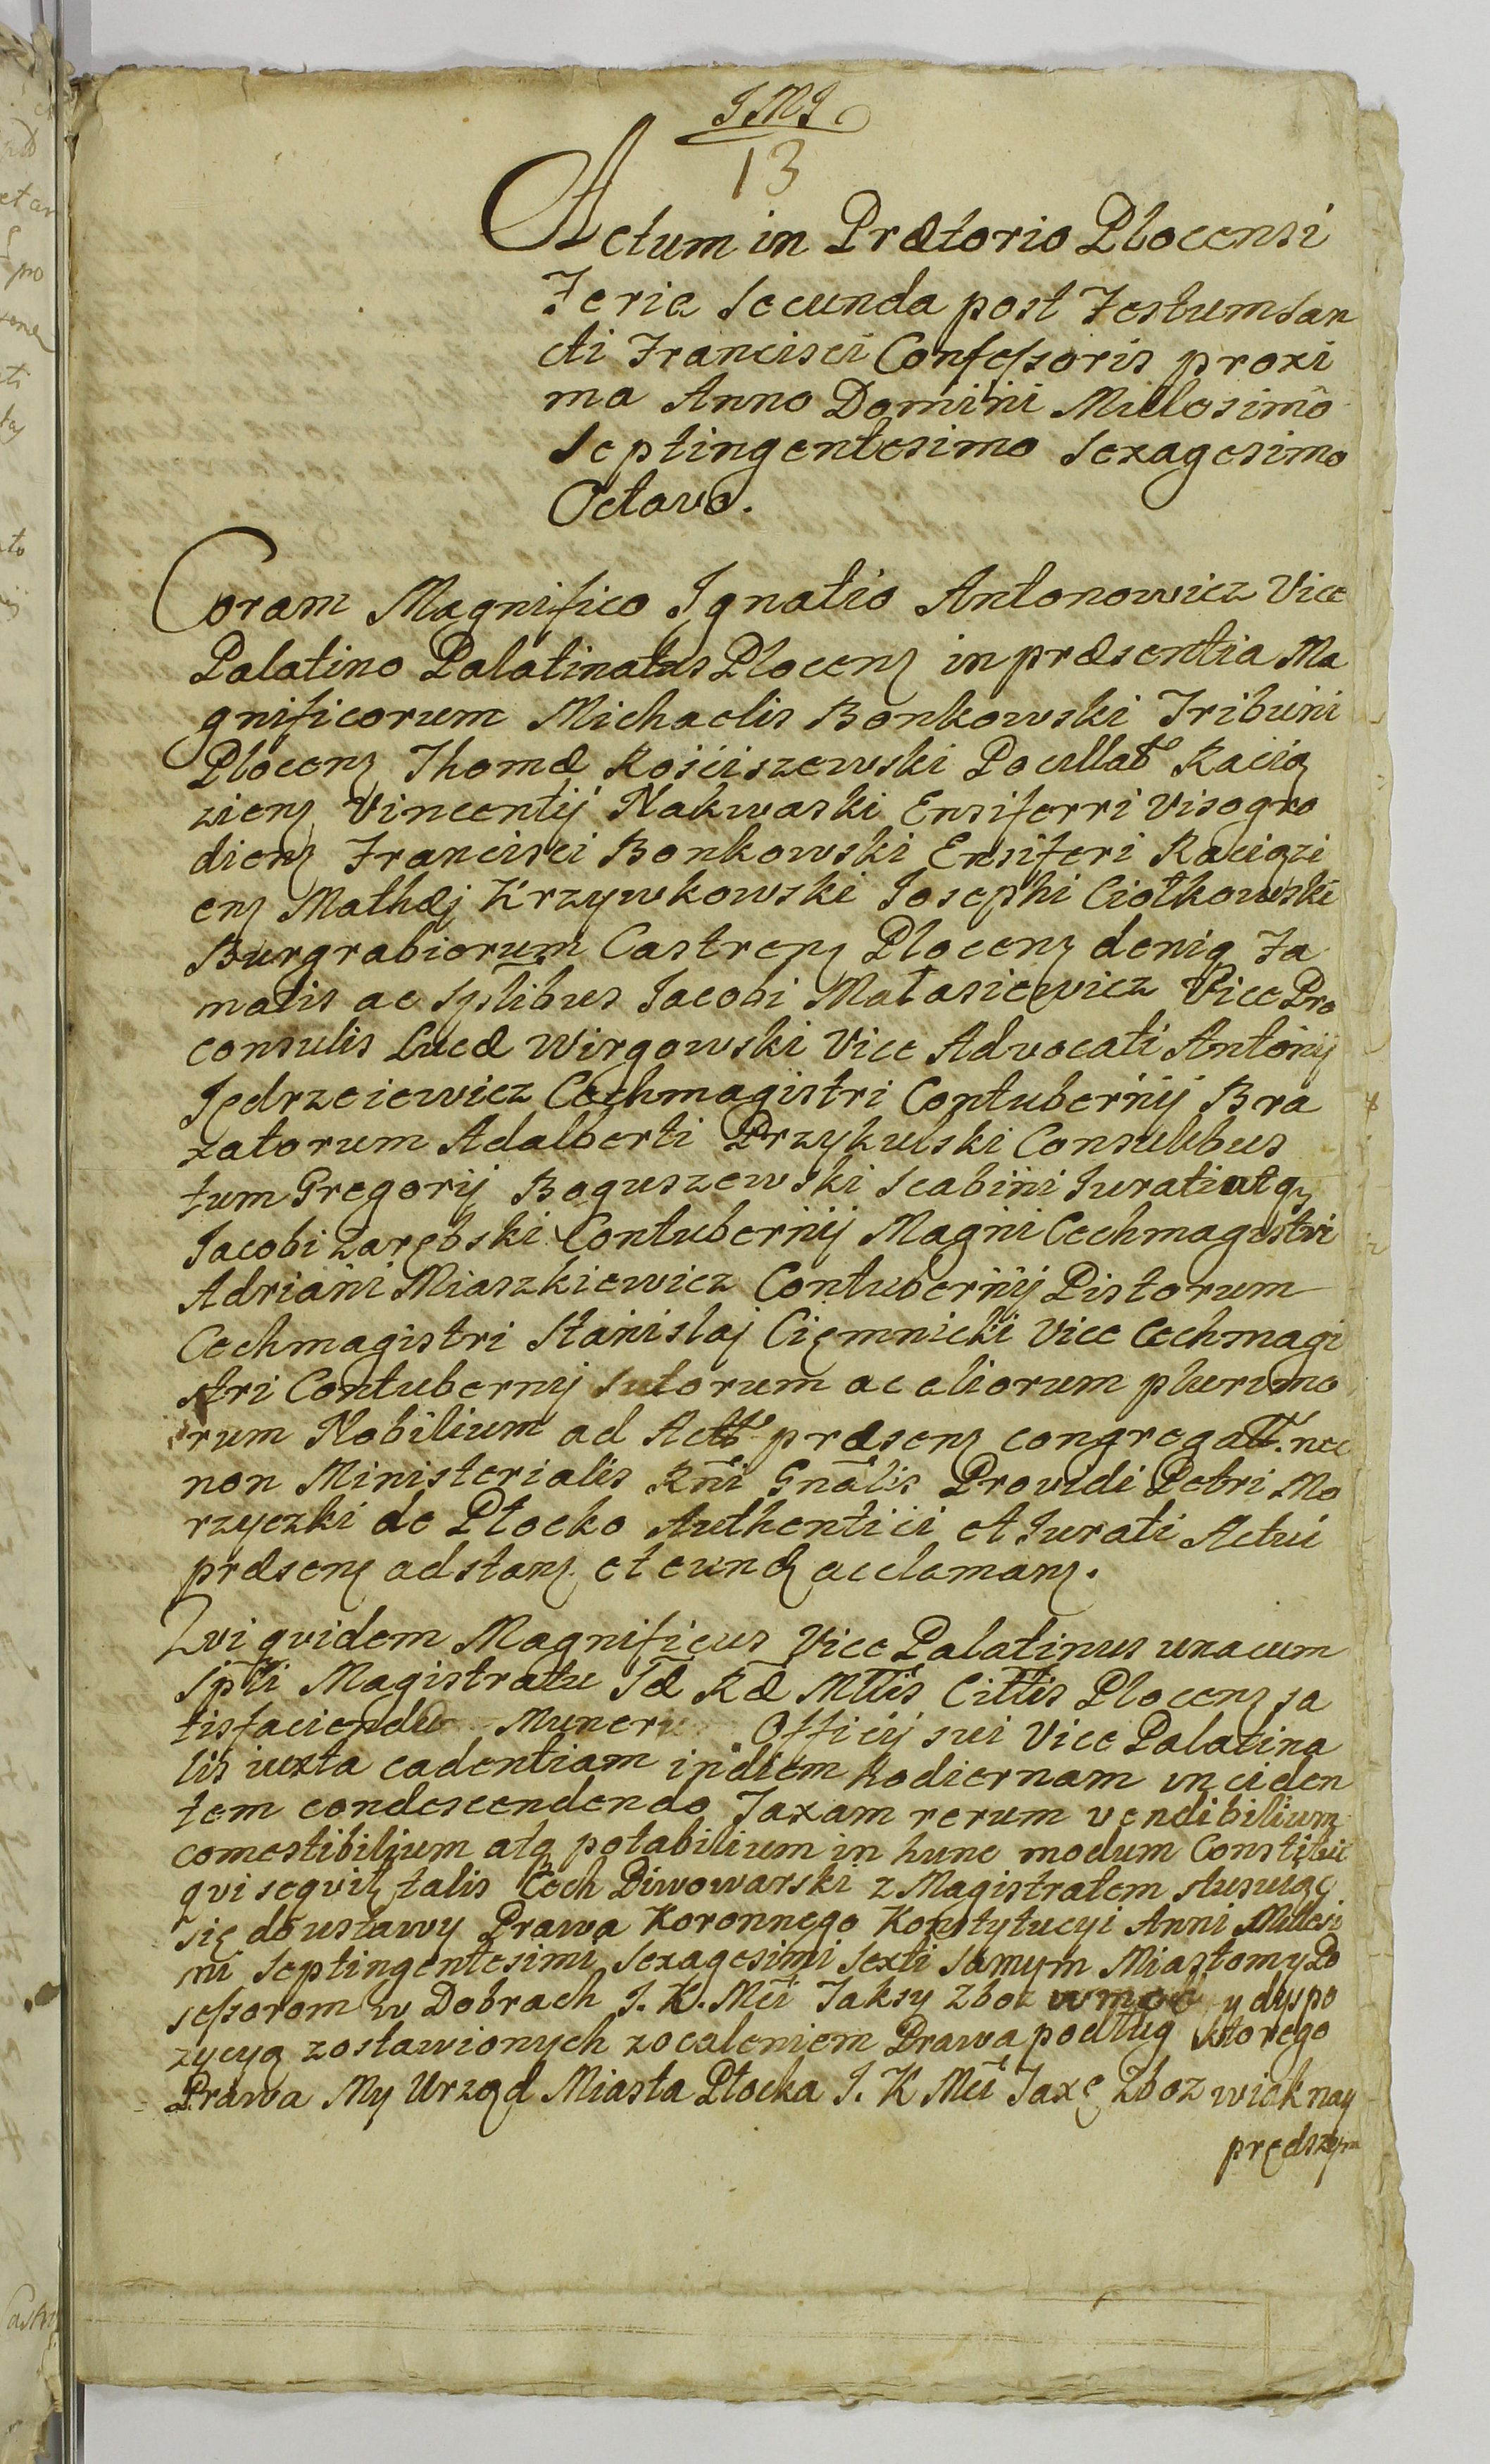 JMJ
13
Actum in Prætorio Plocensi
Feria Secunda post Festum San
cti Francisci Confessoris proxi
ma Anno Domini Millesimo
Septingentesimo Sexagesimo
Octavo.
Coram Magnifico Ignatio Antonowicz Vice
Palatino Palatinatus Plocens in præsentia Ma
gnificorum Michaelis Bonkowski Tribuni
Plocens Thomæ Rościszewski Pocillat Raciąz
ziens Vincentij Nakwaski Ensiferri Visogro
diens Francisci Bonkowski Ensiferi Raciązi
ens Mathæj Krzywkowski Josephi Ciołkowski
Burgrabiorum Castrens Plocens deniq Fa
matis ac Splibus Jacobi Małasiewicz Vice Pro
consulis Lucæ Wirgowski Vice Advocati Antonij
Jędrzeiewicz Cechmagistri Contubernij Bra
xatorum Adalberti Przykulski Consulibus
tum Gregorij Boguszewski Scabini Jurati atq
Jacobi Zarębski Contubernij Magni Cechmagistri
Adriani Miaszkiewicz Contubernij Pistorum
Cechmagistri Stanislaj Ciemnicki Vice Cechmagi
stri Contubernij Sutorum ac aliorum plurimo
rum Nobilium ad Actt præsens congregatt. nec
non Ministerialis Rñi Gnãlis Providi Petri Mo
rzyczki de Płocko Authentici et Jurati Actui
præsens adstans et eund acclamans.
Qvi qvidem Magnificus Vice Palatinus unacum
Spti Magistratu Sæ Ræ Mttis Cittis Plocens sa
tisfaciendo Muneri Officij sui Vice Palatina
lis iuxta cadentiam in diem hodiernam inciden
tem condescendendo Taxam rerum vendibilium
comestibilium atq potabilium in hunc modum Constituit
qvi seqvit talis Cech Piwowarski z Magistratem stusuiąc
się do ustawy Prawa Koronnego Konstytucyi Anni Millesi
mi Septingentesimi Sexagesimi Sexti samym Miastom y Po
sessorom w Dobrach J. K. Mći Taksy Zboz w mocy y dyspo
zycyą zostawionych z ocaleniem Prawa podług ktorego
Prawa My Urząd Miasta Płocka J. K Mći Taxę Zboz wiak nay
prędszym